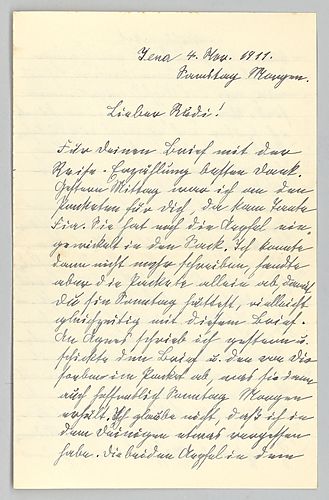 Jena 4. Nov. 1911.
Samstag Morgen.
Lieber Rudi!
Für deinen Brief mit der
Reise-Erzählung besten Dank.
Gestern Mittag war ich an den
Paketen für Dich, da kam Tante
Fia. Sie hat noch die Aepfel ein-
gewickelt in den Sack. Ich konnte
dann nicht mehr schreiben, sandte
aber die Pakete allein ab, damit
Du sie Sonntag hättest, vielleicht
gleichzeitig mit diesem Brief.
An Agnes schrieb ich gestern u.
schickte den Brief u. den von Dir
soeben im Paket ab, was sie dann
auch hoffentlich Sonntag Morgen
erhält. Ich glaube nicht, daß ich in
dem Deinigen etwas vergessen
habe. Die beiden Aepfel in dem